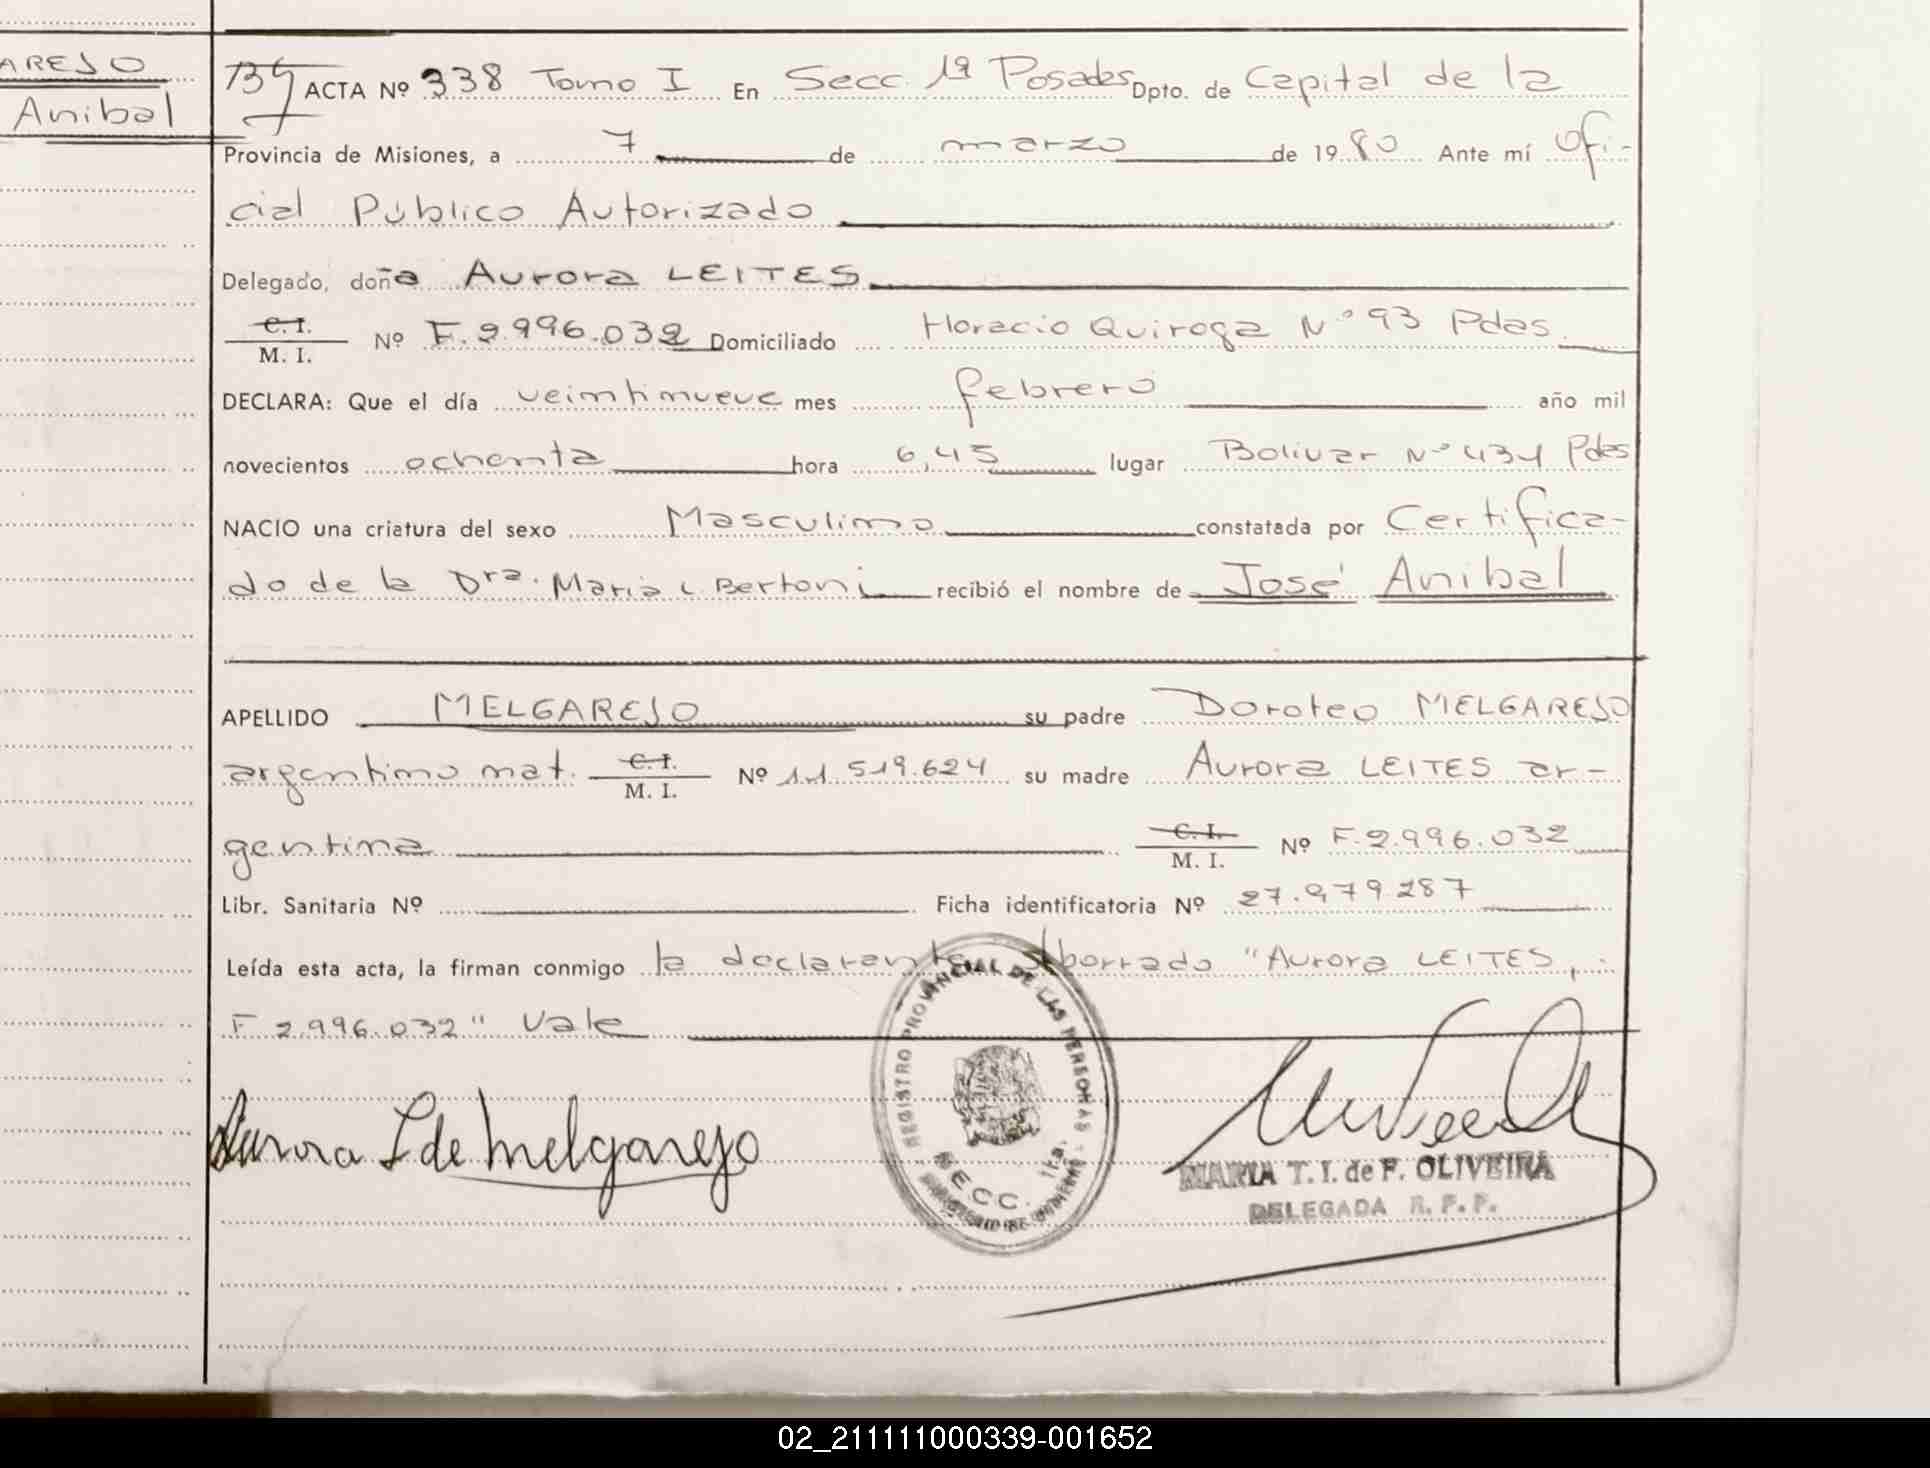 AREJO
Anibal
ACTA Nº 338 Tomo I En Secc. 1ª Posadas Dpto. de Capital de la
Provincia de Misiones, a 7 de marzo de 1980 Ante mí Ofi-
cial Público Autorizado
Delegado, doña Aurora LEITES
C.I. M. I. Nº F.2.996.032 Domiciliado Horacio Quiroga Nº 93 Pdas
DECLARA: Que el día veintinueve mes febrero año mil
novecientos ochenta hora 6,45 lugar Bolivar Nº 434 Pdas
NACIO una criatura del sexo Masculino constatada por Certifica-
do de la Dra. Maria L. Bertoni recibió el nombre de José Anibal
APELLIDO MELGAREJO su padre Doroteo MELGAREJO
argentino mat. C.I. M. I. Nº 11.519.624 su madre Aurora LEITES ar-
gentina C.I. M. I. Nº F.2.996.032
Libr. Sanitaria Nº Ficha identificatoria Nº 27.979.287
Leída esta acta, la firman conmigo la declarante Sborrado "Aurora LEITES,
F 2.996.032" Vale
REGISTRO PROVINCIAL DE LAS PERSONAS
SECC. 1ra.
Aurora L de Melgarejo
MARIA T. I. de F. OLIVEIRA
DELEGADA R. P. P.
02_211111000339-001652